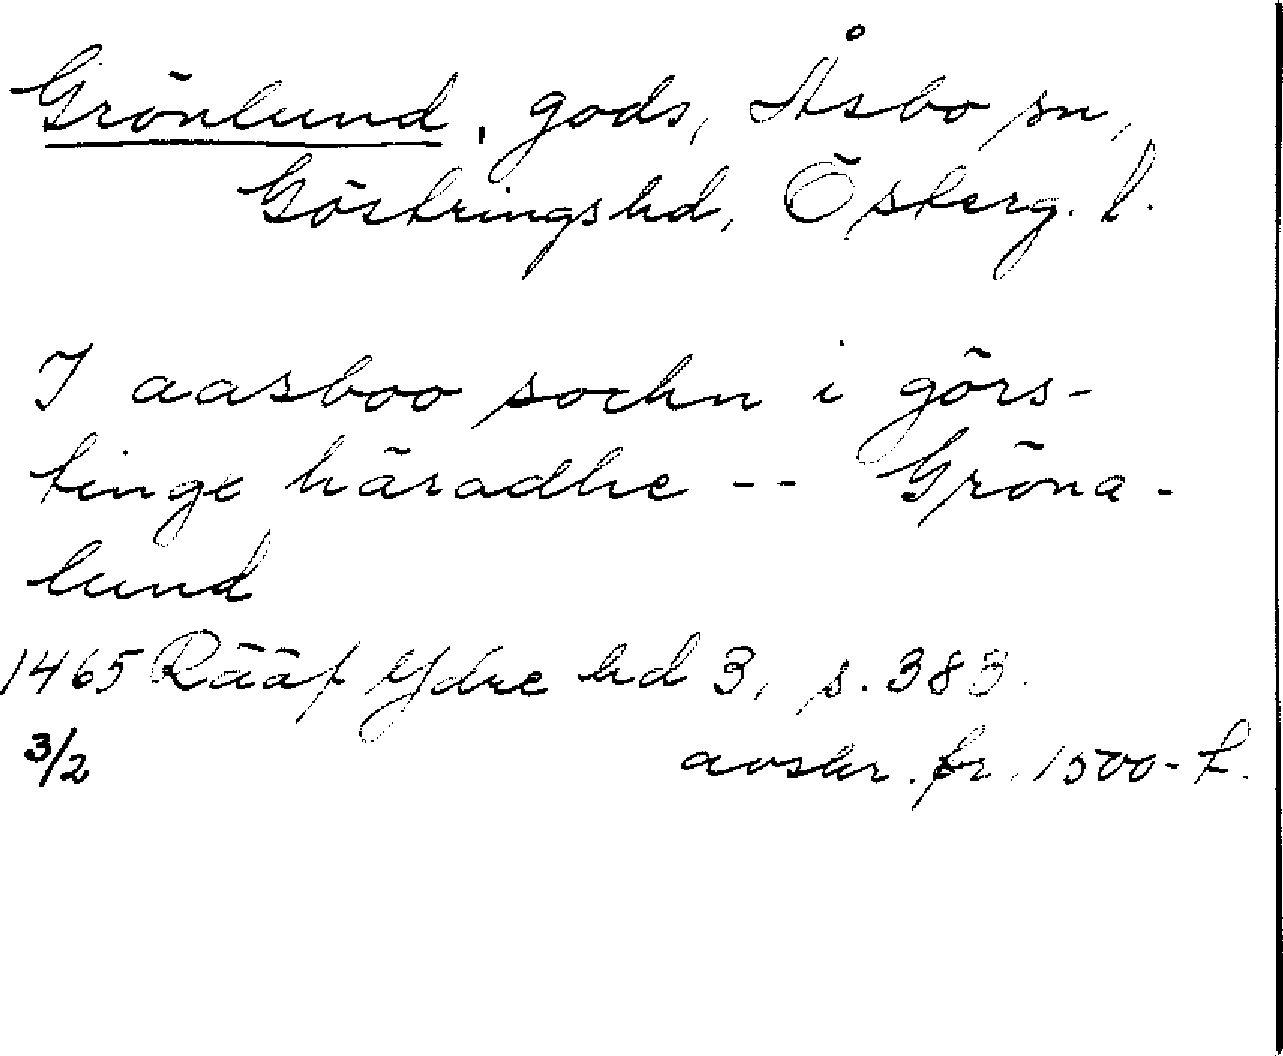 Grönlund, gods, Åsbo sn,
Göstrings hd, Österg. l.
I aasboo sochn i görs-
tinge häradhe -- Gröna-
lund
1465 Rääf Ydre hd 3, s. 383.
3/2 avskr. fr. 1500-t.